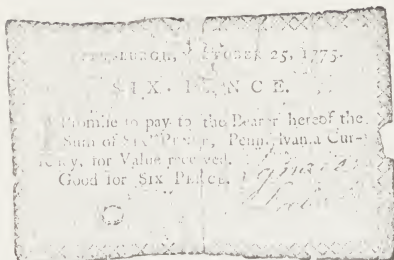 PITTSBURGH, OCTOBER 25, 1775.
SIX PENCE.
I Promiſe to pay to the Bearer hereof the
Sum of SIX PENCE, Pennſylvania Cur-
rency, for Value received.
Good for SIX PENCE.